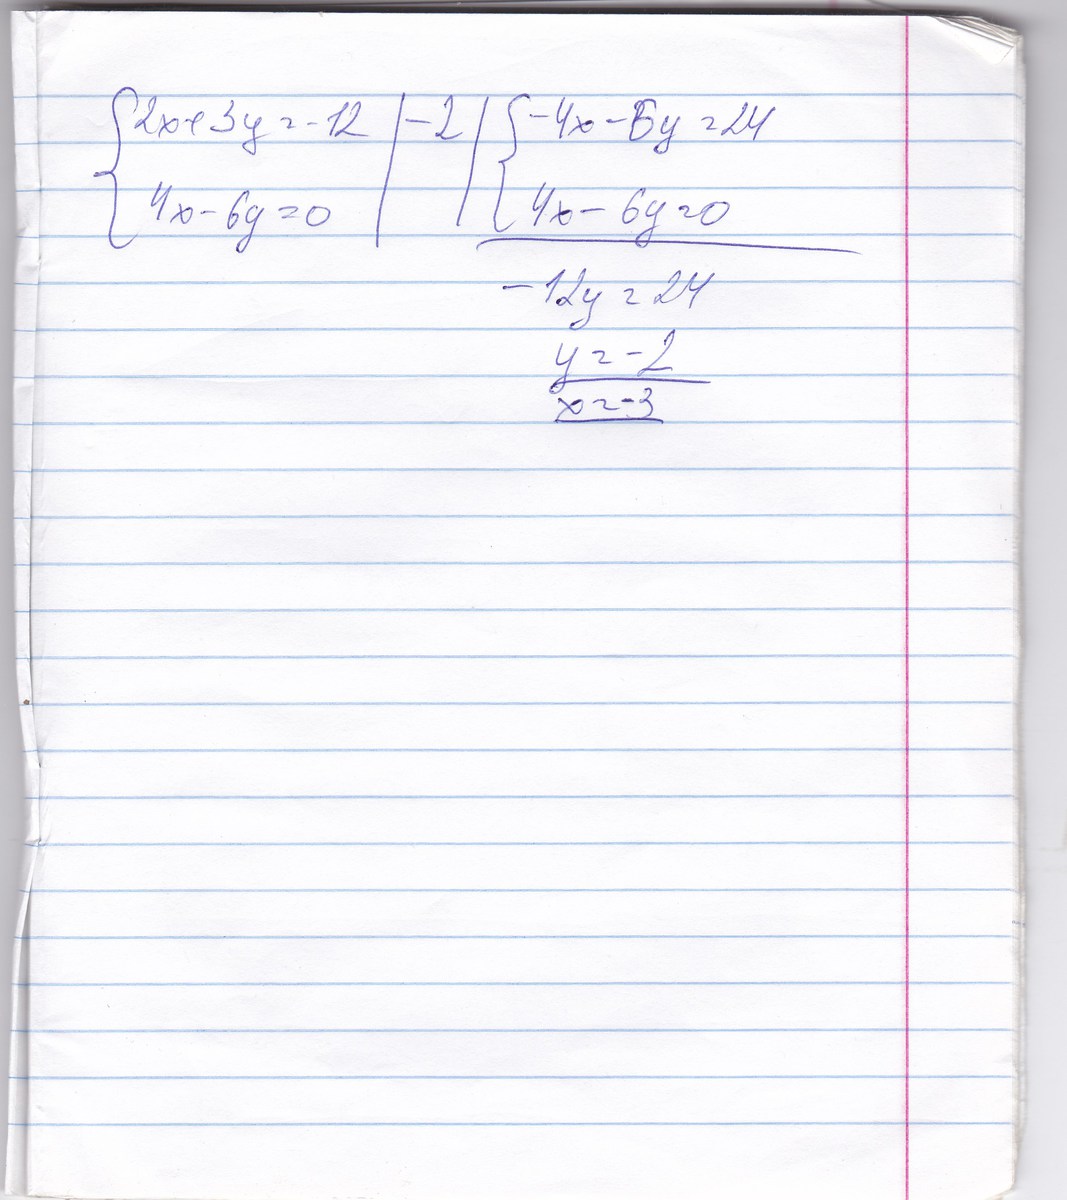 {2x+3y=-12 |-2| {-4x-6y=24
4x-6y=0 4x-6y=0
-12y=24
y=-2
x=-3